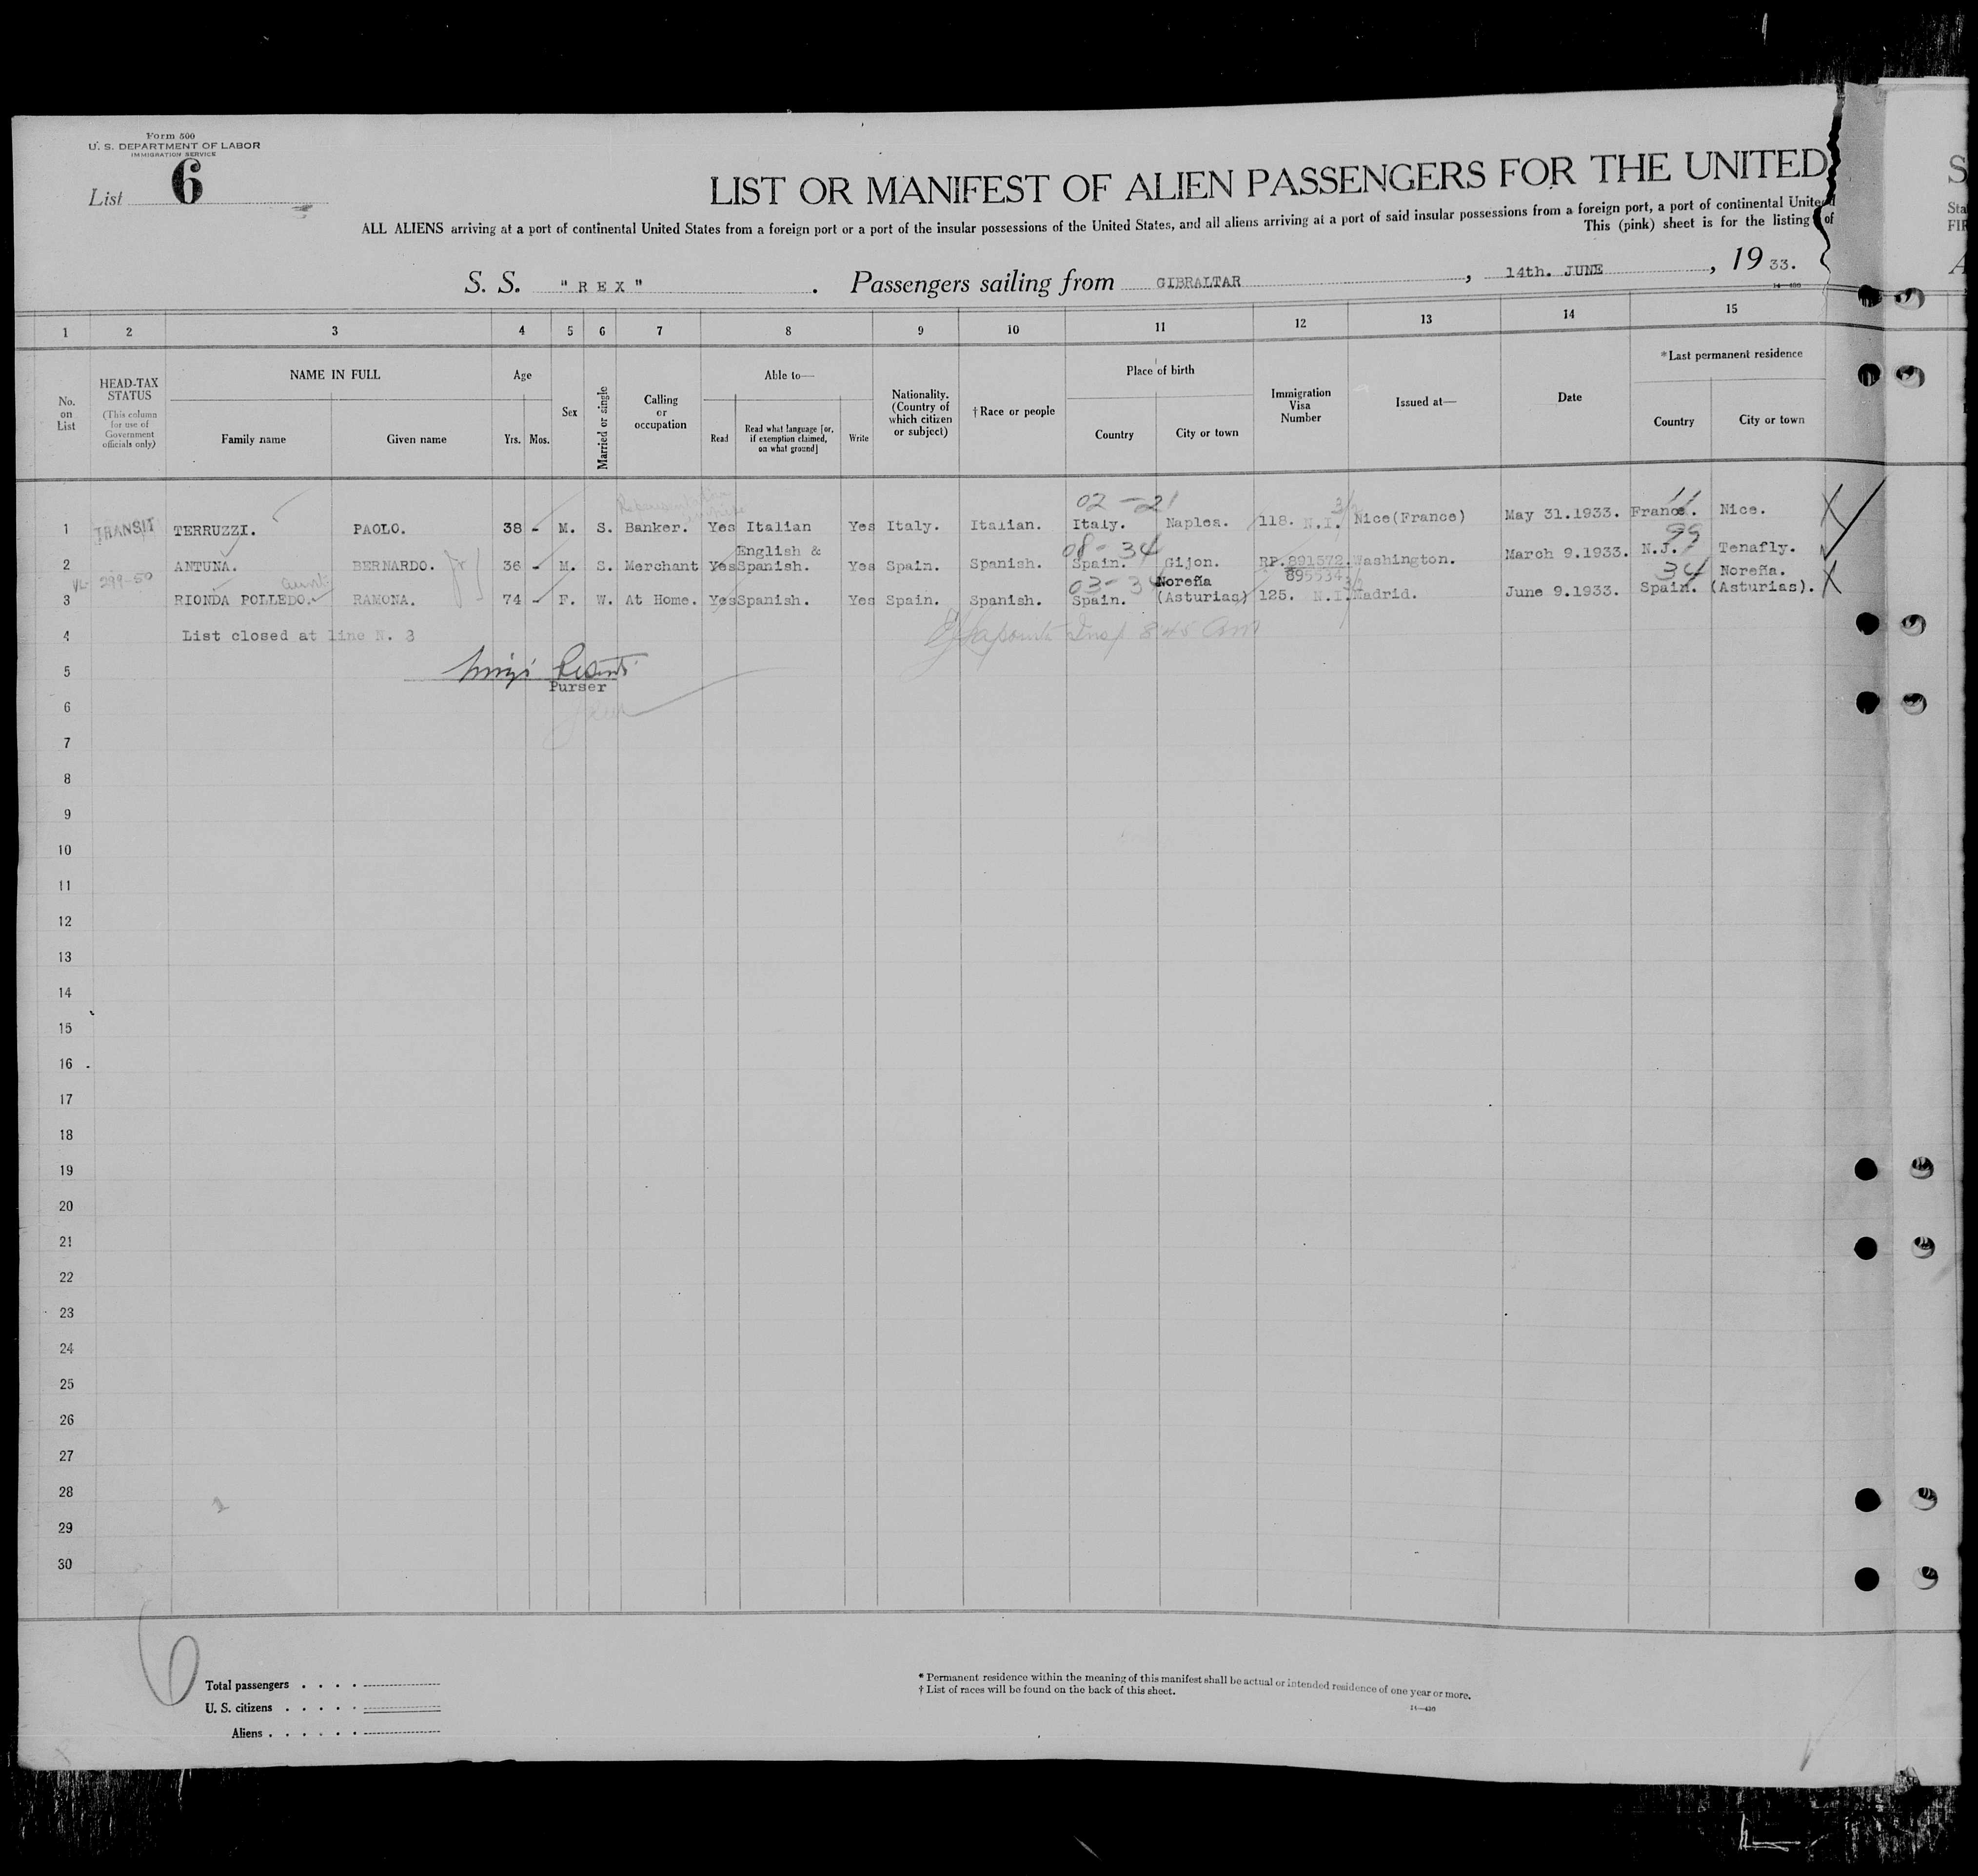 Form 500
U. S. DEPARTMENT OF LABOR
IMMIGRATION SERVICE
List 6
LIST OR MANIFEST OF ALIEN PASSENGERS FOR THE UNITED
ALL ALIENS arriving at a port of continental United States from a foreign port or a port of the insular possessions of the United States, and all aliens arriving at a port of said insular possessions from a foreign port, a port of continental United
This (pink) sheet is for the listing of
S. S. "REX". Passengers sailing from GIBRALTAR, 14th. JUNE, 1933.
14—430
1 2 3 4 5 6 7 8 9 10 11 12 13 14 15
No. on List
HEAD-TAX STATUS (This column for use of Government officials only)
NAME IN FULL
Family name
Given name
Age
Yrs.
Mos.
Sex
Married or single
Calling or occupation
Able to—
Read
Read what language [or, if exemption claimed, on what ground]
Write
Nationality. (Country of which citizen or subject)
†Race or people
Place of birth
Country
City or town
Immigration Visa Number
Issued at—
Date
*Last permanent residence
Country
City or town
02 - 21 3/2 11
1 TRANSIT TERRUZZI. PAOLO. 38 - M. S. Banker. Yes Italian Yes Italy. Italian. Italy. Naples. 118. N.I. Nice(France) May 31.1933. France. Nice.
08 - 34 99
2 ANTUNA. BERNARDO. 36 - M. S. Merchant Yes English & Spanish. Yes Spain. Spanish. Spain. Gijon. RP.891572. 895534 Washington. March 9.1933. N.J. Tenafly.
VL- 299-50 aunt 03 - 34 34
3 RIONDA POLLEDO. RAMONA. 74 - F. W. At Home. Yes Spanish. Yes Spain. Spanish. Spain. Noreña (Asturias) 125. N.I. Madrid. June 9.1933. Spain. Noreña. (Asturias).
4 List closed at line N. 3 Insp 8 45 am
5
Purser
6
7
8
9
10
11
12
13
14
15
16
17
18
19
20
21
22
23
24
25
26
27
28
29
30
6
Total passengers
U. S. citizens
Aliens
* Permanent residence within the meaning of this manifest shall be actual or intended residence of one year or more.
† List of races will be found on the back of this sheet.
14—430